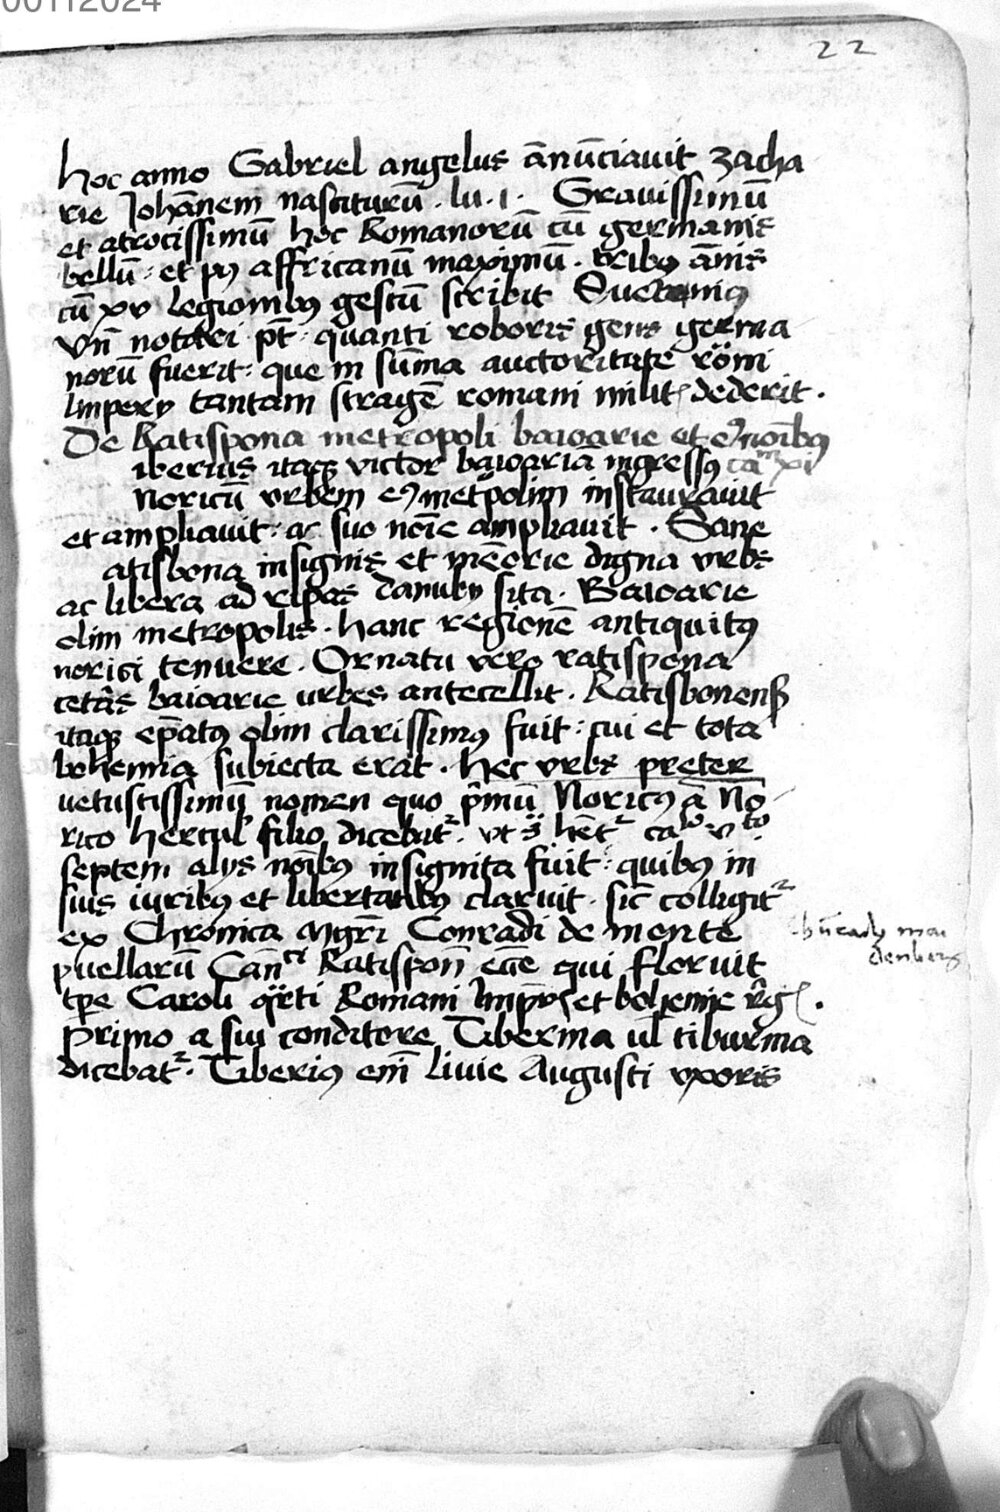 00112024
22
hoc anno Gabriel angelus ānūciauit zacha
rie Johānem nasciturū . lu . i . Grauissimū
et atrocissimū hoc Romanorū cū germanis
bellū : et pꝰ affricanū maximū . tribꝰ ānis
cū xv legionibꝰ gestū scribit Suetonius
vn̄ notari pt̄ : quanti roboris gens germa
norū fuerit : que in sūma auctoritate romi
Imperij tantam stragē romani milit dederit .
De Ratispona metropoli baioarie et eꝰ noībꝰ
iberius itaqꝫ victor baioariā ingressꝰ caᵐ xi
noricū vrbem eꝰ metpolim instaurauit
et ampliauit : ac suo noīe ampliauit . Sane
atisbona insignis et mēorie digna vrbs
ac libera ad ripas danubij sita . Baioarie
olim metropolis . hanc regionē antiquitꝰ
norici tenuere . Ornatu vero ratispona
cetās baioarie urbes antecellit . Ratisbonensꝭ
itaqꝫ ep̄atꝰ olim clarissimꝰ fuit : cui et tota
bohemia subiecta erat . hec vrbs preter
uetustissimū nomen quo p̄mū Noricū ā No
rico hercul filio dicebat . vt s̄ hēt caᵒ vᵗᵒ
septem alijs noībꝰ insignita fuit : quibꝰ in
suis iuribꝰ et libertatibꝰ claruit . sic colligit
ex Chronica mgr̄i Conradi de mente
puellarū Can̄ci Ratispoñ ecc̄e qui floruit
tp̄e Caroli q̈rti Romani Impr̄ꝭ et bohemie r̄gꝭ .
Primo a sui conditore Tiberina ul̄ tiburnia
dicebat . Tiberiꝰ em̄ liuie Augusti vxoris
Chūradꝰ mai
denberg